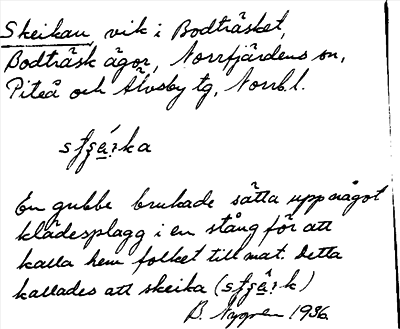 Skeikan vik i Bodträsket,
Bodträsk ägor, Norrfjärdens sn,
Piteå och Älvsby tg, Norrb. l.
En gubbe brukade sätta upp något
klädesplagg i en stång för att
kalla hem folket till mat. Detta
kallades att skeika
B. Nygren 1936